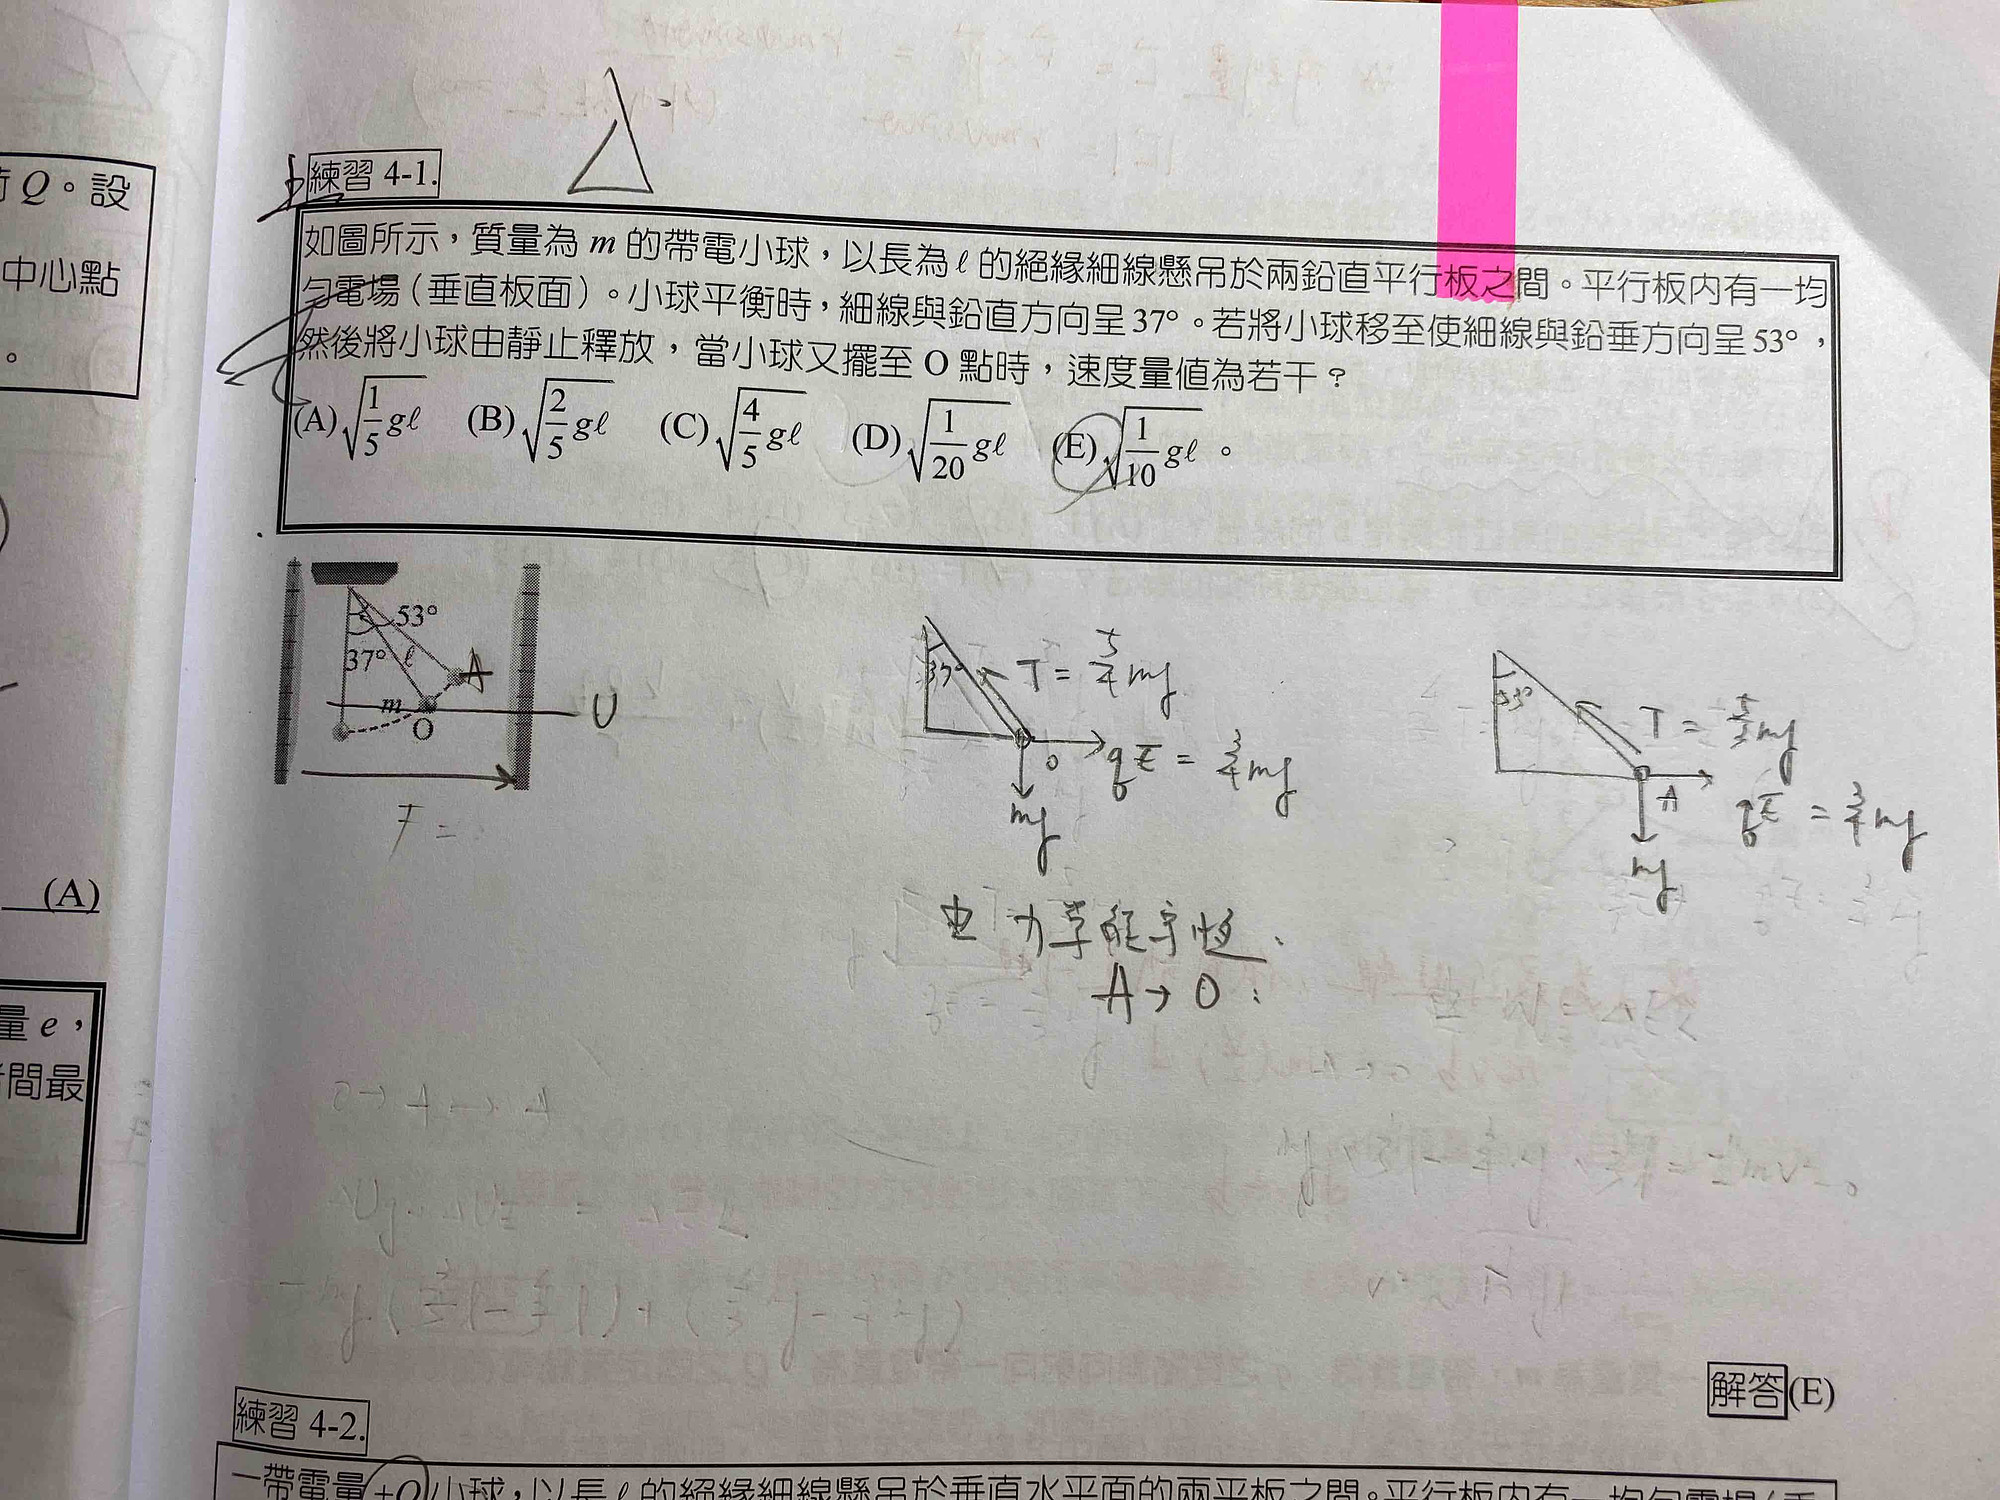 荷 Q。設
中心點
。
(A)
量 e,
者間最
練習 4-1.
如圖所示,質量為 m 的帶電小球,以長為 ℓ 的絕緣細線懸吊於兩鉛直平行板之間。平行板內有一均
勻電場(垂直板面)。小球平衡時,細線與鉛直方向呈 37°。若將小球移至使細線與鉛垂方向呈 53°,
然後將小球由靜止釋放,當小球又擺至 O 點時,速度量值為若干?
(A)√(1/5 gℓ) (B)√(2/5 gℓ) (C)√(4/5 gℓ) (D)√(1/20 gℓ) (E)√(1/10 gℓ)。
53°
37° ℓ A
m O U
F =
37° T = 5/4 mg
O qE = 3/4 mg
mg
53° T = 5/3 mg
A qE = 3/4 mg
mg
由力學能守恆、
A → O:
解答(E)
練習 4-2.
一帶電量+Q小球,以長 ℓ 的絕緣細線懸吊於垂直水平面的兩平板之間。平行板內有一均勻電場(垂